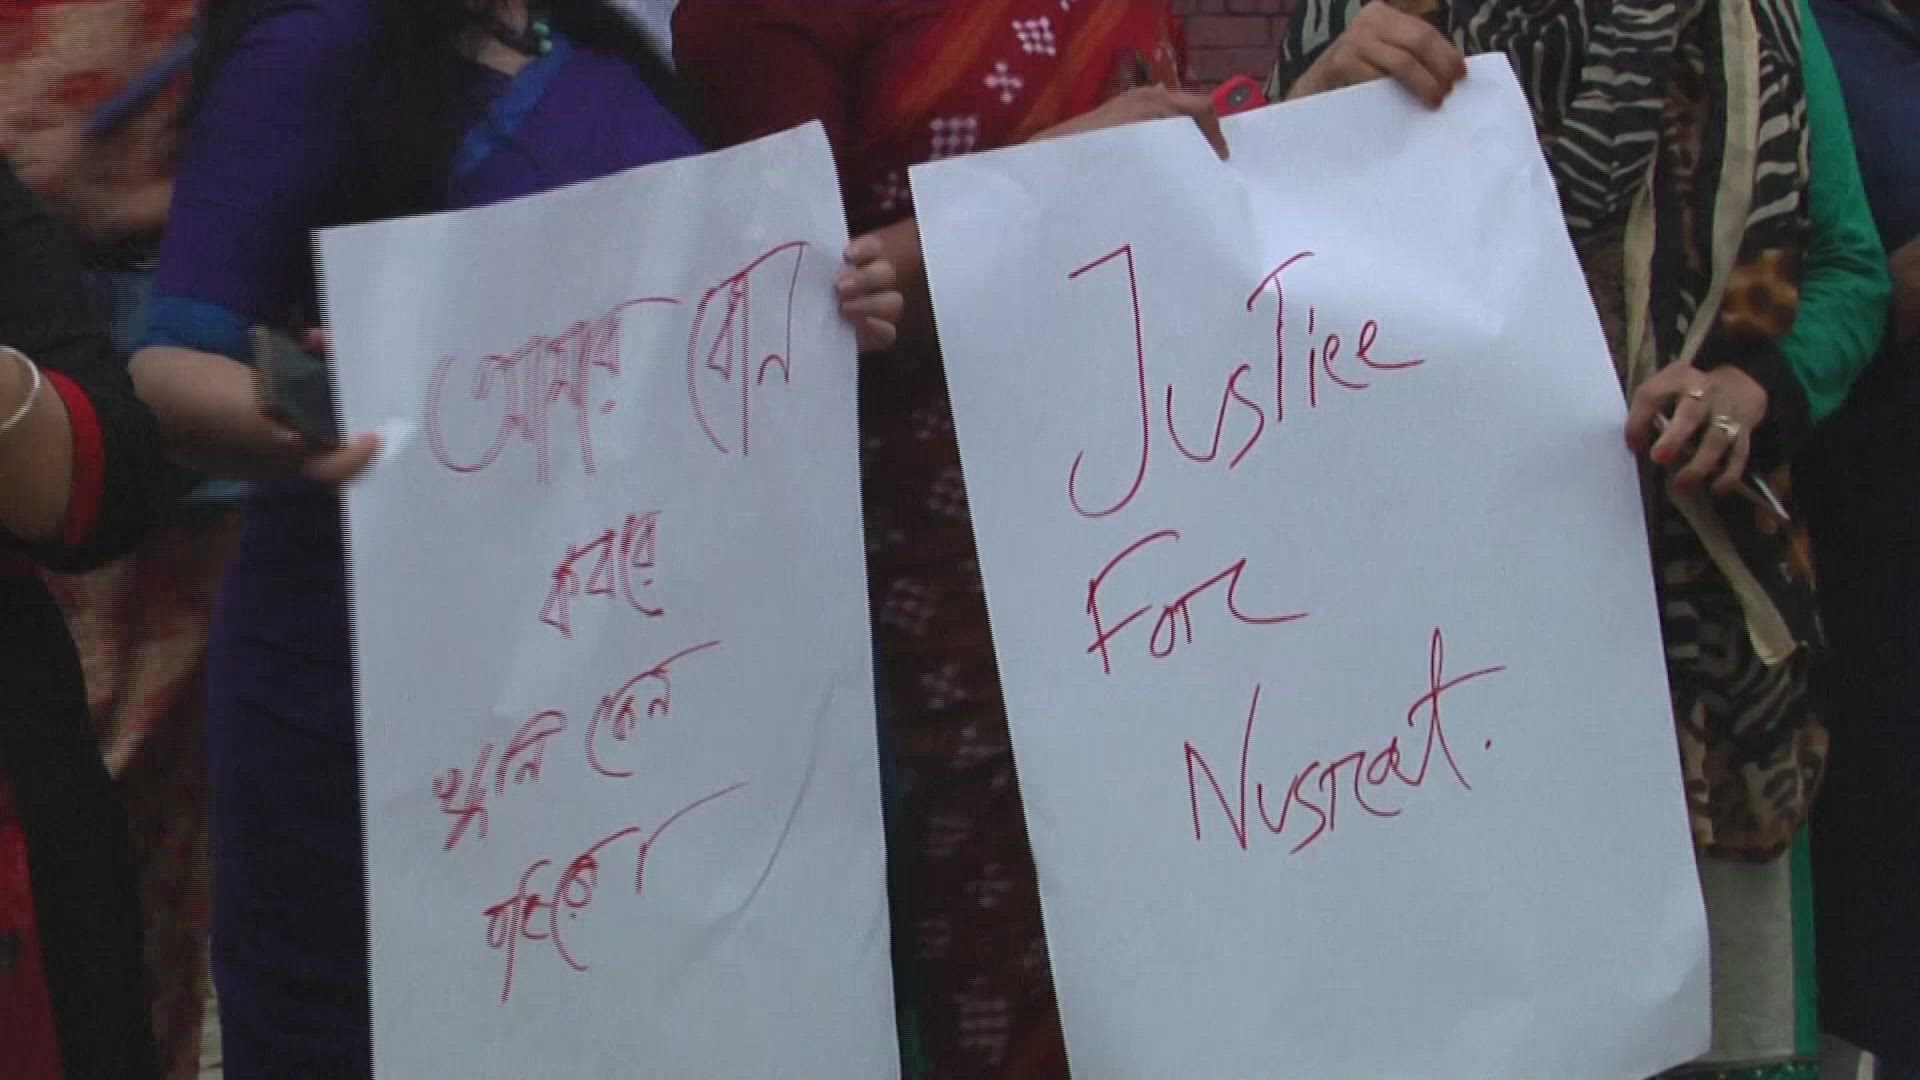 আমার বোন
কবরে
খুনি কেন
বাহিরে।
Justice
For
Nusrat.